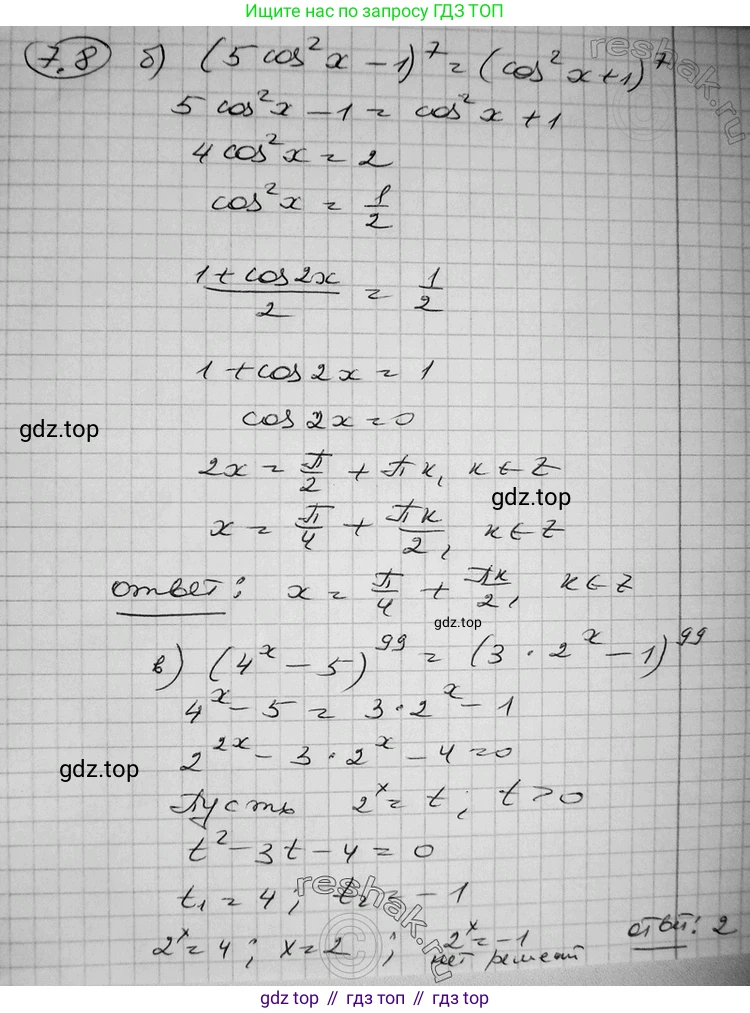 Ищите нас по запросу ГДЗ ТОП
7.8 б) (5 cos²x − 1)⁷ = (cos²x + 1)⁷
5 cos²x − 1 = cos²x + 1
4 cos²x = 2
cos²x = 1/2
(1 + cos 2x)/2 = 1/2
1 + cos 2x = 1
cos 2x = 0
gdz.top
2x = π/2 + πк, к ∈ Z
gdz.top
x = π/4 + πк/2, к ∈ Z
ответ: x = π/4 + πк/2, к ∈ Z
gdz.top
в) (4ˣ − 5)⁹⁹ = (3 · 2ˣ − 1)⁹⁹
4ˣ − 5 = 3 · 2ˣ − 1
2²ˣ − 3 · 2ˣ − 4 = 0
gdz.top
Пусть 2ˣ = t; t > 0
t² − 3t − 4 = 0
t₁ = 4; t₂ = −1
2ˣ = 4; x = 2; 2ˣ = −1 ответ: 2
нет решений
reshak.ru
reshak.ru
gdz.top // гдз топ // gdz.top